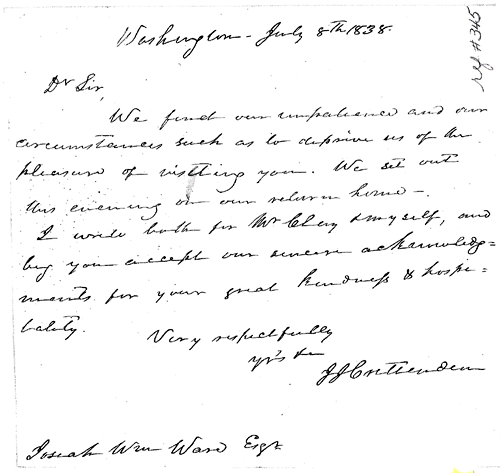 Washington - July 8th 1838.
Dr Sir,
We find our impatience and our
circumstances such as to deprive us of the
pleasure of visiting you. We set out
this evening on our return home -
I write both for Mr Clay & myself, and
beg you accept our sincere acknowledg=
ments for your great kindness & hospi=
tality.
Very respectfully
yrs &c
JJ Crittenden
Josiah Wm Ware Esqr